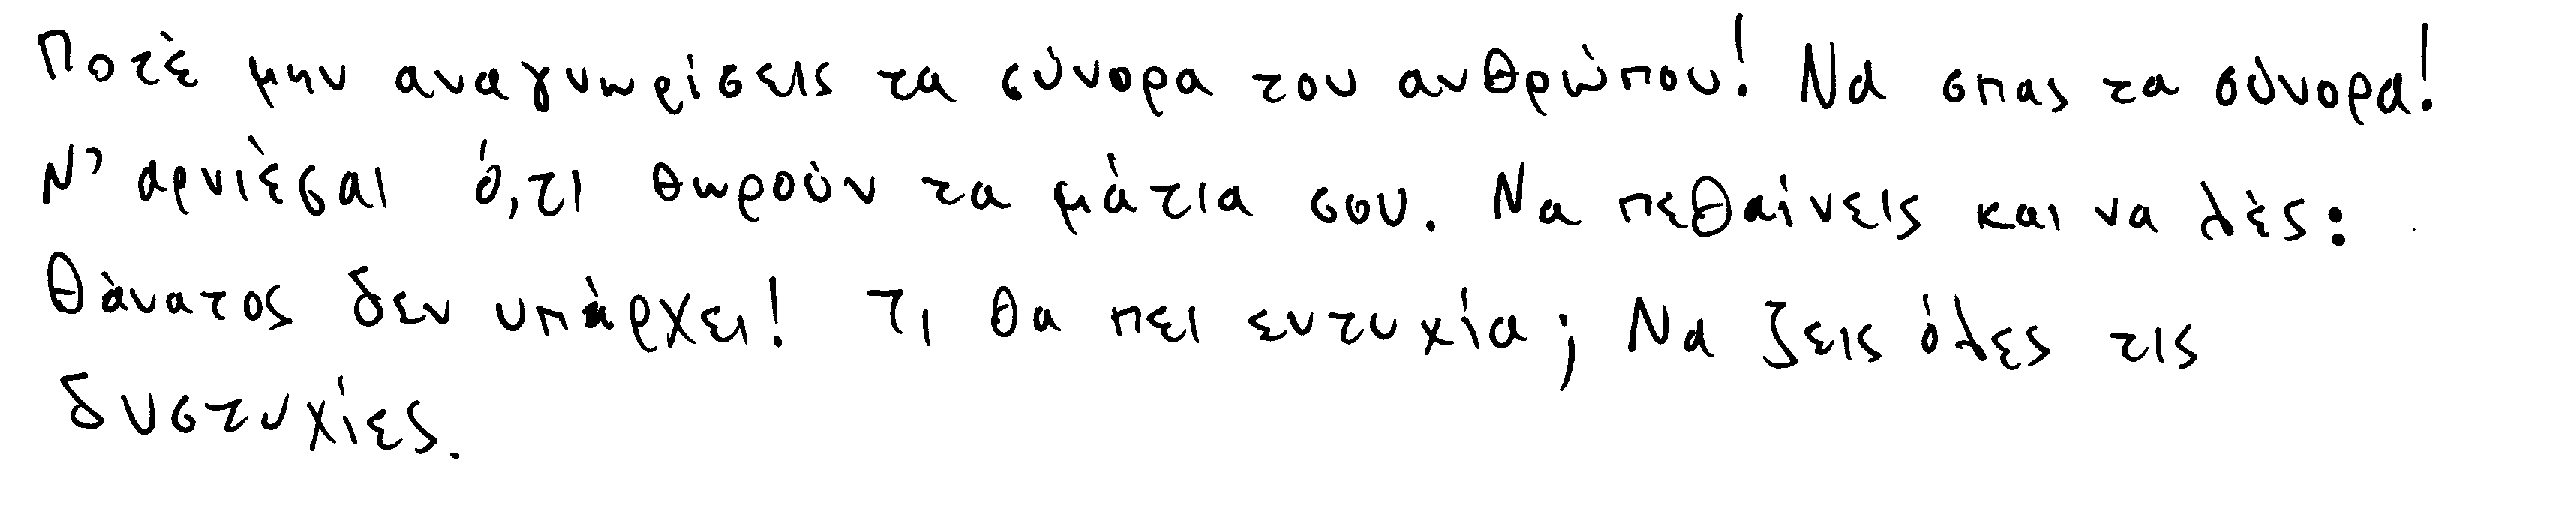 Ποτέ μην αναγνωρίσεις τα σύνορα του ανθρώπου! Να σπας τα σύνορα!
Ν' αρνιέσαι ό,τι θωρούν τα μάτια σου. Να πεθαίνεις και να λές:
Θάνατος δεν υπάρχει! Τι θα πει ευτυχία; Να ζεις όλες τις
δυστυχίες.